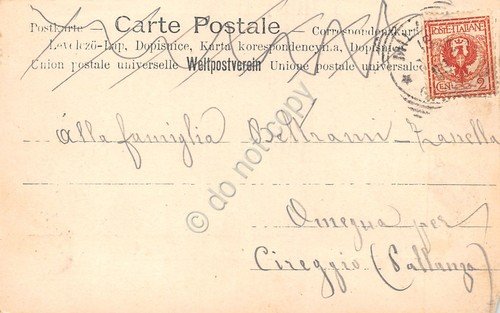 Postkarte — Carte Postale — Correspondenzkarte
Levelező-Lap, Dopisnice, Karta korespondencyjna, Dopisnice
Union postale universelle Weltpostverein Unione postale universale
POSTE ITALIANE
CENT. 2
Alla famiglia Beltrami-Zanella
Omegna per
Cireggio (Pallanza)
© do not copy